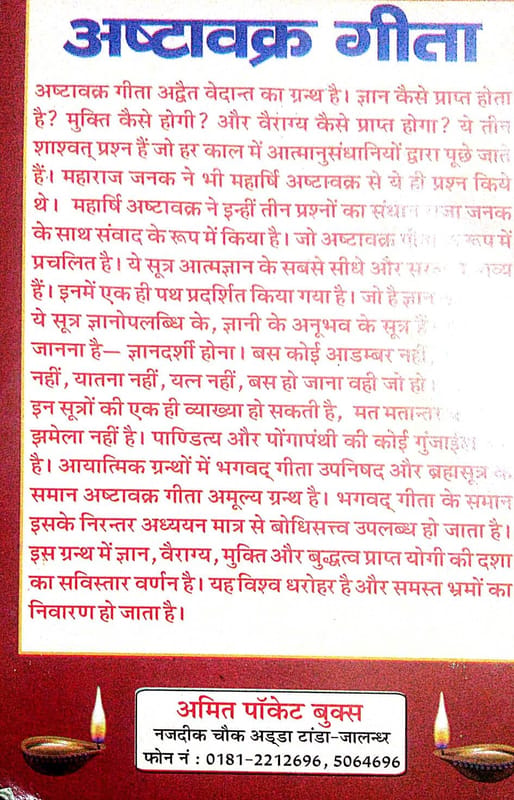 अष्टावक्र गीता
अष्टावक्र गीता अद्वैत वेदान्त का ग्रन्थ है। ज्ञान कैसे प्राप्त होता
है? मुक्ति कैसे होगी? और वैराग्य कैसे प्राप्त होगा? ये तीन
शाश्वत् प्रश्न हैं जो हर काल में आत्मानुसंधानियों द्वारा पूछे जाते
हैं। महाराज जनक ने भी महार्षि अष्टावक्र से ये ही प्रश्न किये
थे। महार्षि अष्टावक्र ने इन्हीं तीन प्रश्नों का जनक
के साथ संवाद के रूप में किया है। जो अष्टावक्र रूप में
प्रचलित है। ये सूत्र आत्मज्ञान के सबसे सीधे और
हैं। इनमें एक ही पथ प्रदर्शित किया गया है। जो है ज्ञान
ये सूत्र ज्ञानोपलब्धि के, ज्ञानी के अनूभव के सूत्र हैं
जानना है– ज्ञानदर्शी होना। बस कोई आडम्बर नहीं,
नहीं, यातना नहीं, यत्न नहीं, बस हो जाना वही जो हो
इन सूत्रों की एक ही व्याख्या हो सकती है, मत मतान्तर
झमेला नहीं है। पाण्डित्य और पोंगापंथी की कोई
है। आयात्मिक ग्रन्थों में भगवद् गीता उपनिषद और ब्रहासूत्र के
समान अष्टावक्र गीता अमूल्य ग्रन्थ है। भगवद् गीता के समान
इसके निरन्तर अध्ययन मात्र से बोधिसत्त्व उपलब्ध हो जाता है।
इस ग्रन्थ में ज्ञान, वैराग्य, मुक्ति और बुद्धत्व प्राप्त योगी की दशा
का सविस्तार वर्णन है। यह विश्व धरोहर है और समस्त भ्रमों का
निवारण हो जाता है।
अमित पॉकेट बुक्स
नजदीक चौक अड्डा टांडा-जालन्धर
फोन नं : 0181-2212696, 5064696